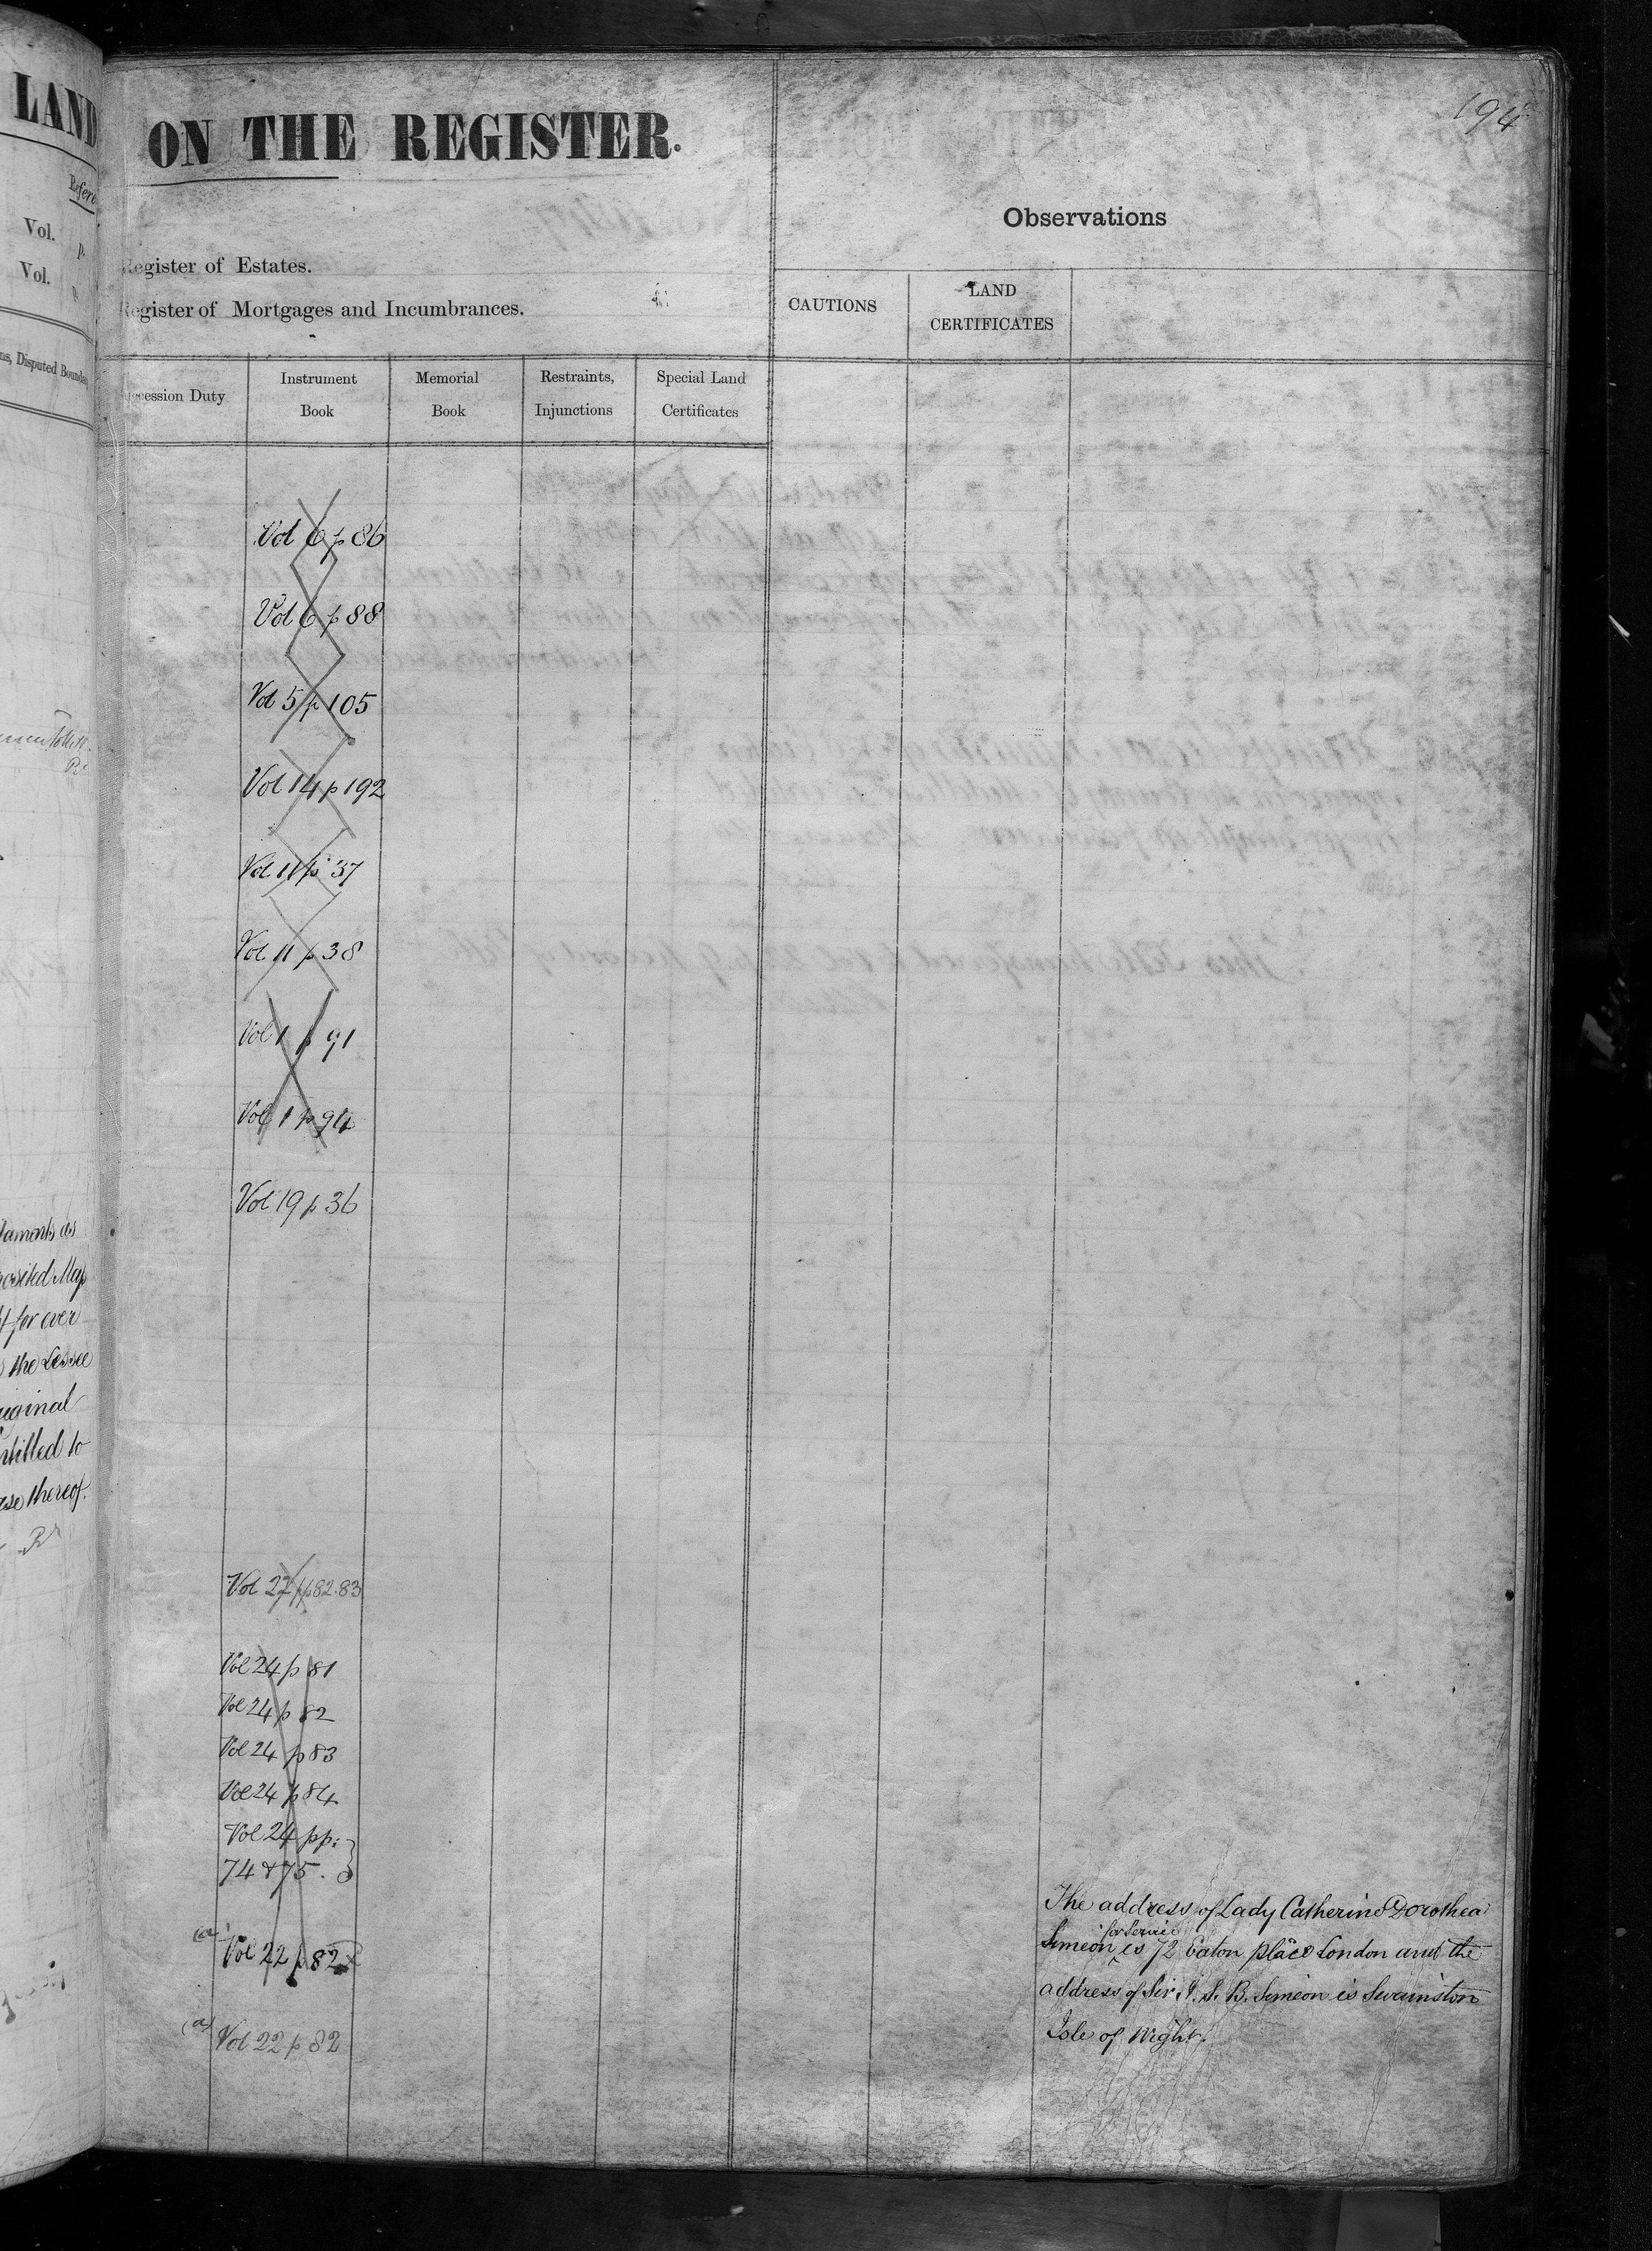 LAND
Vol. p.
Vol. p.
ns, Disputed Bounda
taments as
Map
for ever
the Lessee
original
entitled to
thereof.
194
ON THE REGISTER.
Observations
Register of Estates.
Register of Mortgages and Incumbrances.
CAUTIONS
LAND
CERTIFICATES
cession Duty
Instrument
Book
Memorial
Book
Restraints,
Injunctions
Special Land
Certificates
Vol 6 p 86
Vol 6 p 88
Vol 5 p 105
Vol 14 p 192
Vol 11 p 37
Vol 11 p 38
Vol 1 p 91
Vol 1 p 94
Vol 19 p 36
Vol 27 pp 82.83
Vol 24 p 81
Vol 24 p 82
Vol 24 p 83
Vol 24 p 84
Vol 24 pp:
74 & 75.
(a) Vol 22 p 82
(a) Vol 22 p 82
The address of Lady Catherine Dorothea
Simeon for Service is 72 Eaton place London and the
address of Sir J. S. B. Simeon is Swainston
Isle of Wight.